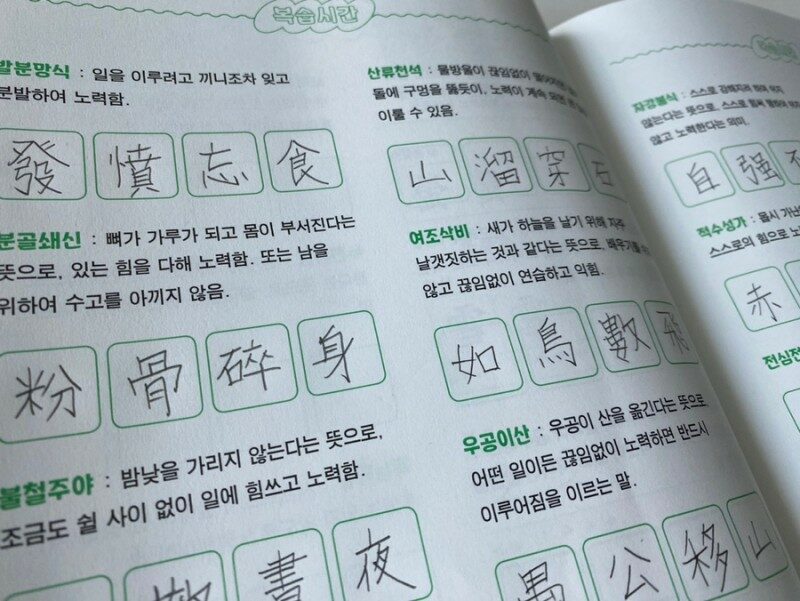 복습시간
발분망식 : 일을 이루려고 끼니조차 잊고
분발하여 노력함.
發 憤 忘 食
분골쇄신 : 뼈가 가루가 되고 몸이 부서진다는
뜻으로, 있는 힘을 다해 노력함. 또는 남을
위하여 수고를 아끼지 않음.
粉 骨 碎 身
불철주야 : 밤낮을 가리지 않는다는 뜻으로,
조금도 쉴 사이 없이 일에 힘쓰고 노력함.
晝 夜
산류천석 : 물방울이 끊임없이
돌에 구멍을 뚫듯이, 노력이 계속 되면
이룰 수 있음.
山 溜 穿 石
여조삭비 : 새가 하늘을 날기 위해 자주
날갯짓하는 것과 같다는 뜻으로, 배우기를
않고 끊임없이 연습하고 익힘.
如 鳥 數 飛
우공이산 : 우공이 산을 옮긴다는 뜻으로,
어떤 일이든 끊임없이 노력하면 반드시
이루어짐을 이르는 말.
愚 公 移 山
자강불식 : 스스로
않는다는 뜻으로, 스스로 힘써
않고 노력한다는 의미.
自 强
적수성가 : 몹시
스스로의 힘으로
赤